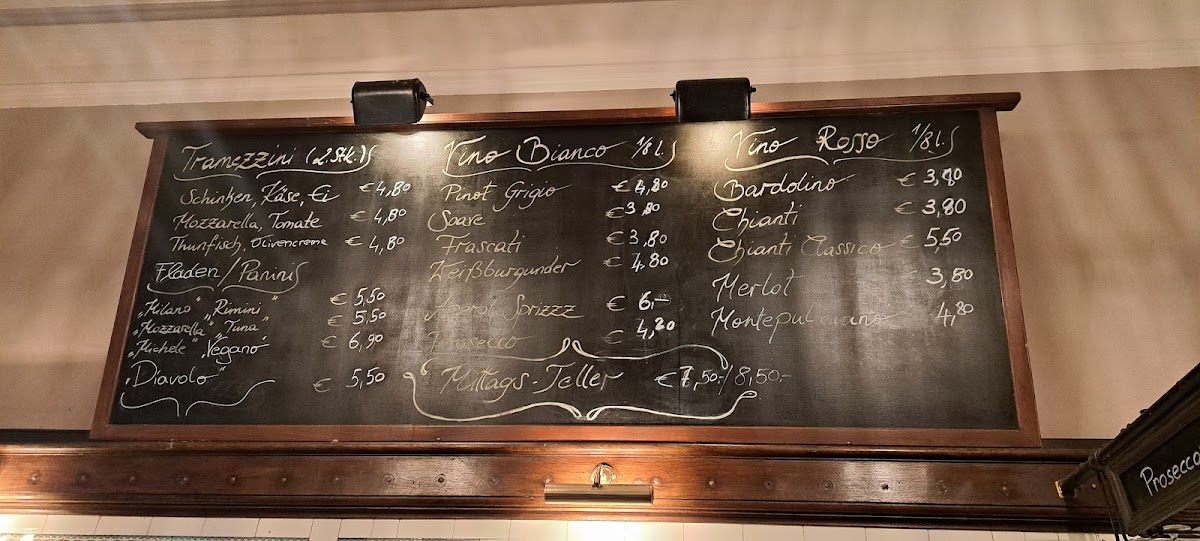 Tramezzini (2 Stk.)
Schinken, Käse, Ei €4,80
Mozzarella, Tomate €4,80
Thunfisch, Olivencreme €4,80
Fladen/Panini
„Milano“ „Rimini“ €5,50
„Mozzarella“ „Tuna“ €5,50
„Michele“ „Vegano“ €6,90
„Diavolo“ €5,50
Vino Bianco 1/8 l.
Pinot Grigio €4,80
Soave €3,80
Frascati €3,80
Weißburgunder €4,80
Aperol Sprizzz €6,-
Prosecco €4,20
Mittags-Teller €7,50-/8,50-
Vino Rosso 1/8 l.
Bardolino €3,80
Chianti €3,80
Chianti Classico €5,50
Merlot €3,80
Montepulciano 4,80
Prosecco